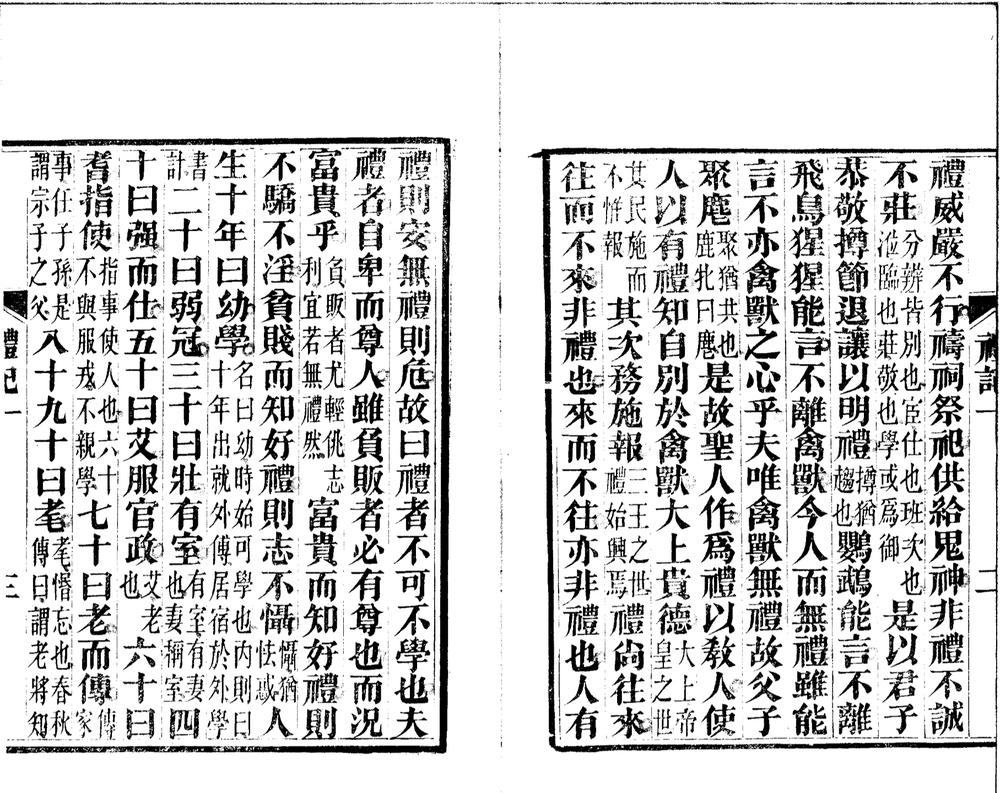 禮記一
二
禮威嚴不行禱祠祭祀供給鬼神非禮不誠
不莊分辨皆別也宦仕也班次也涖臨也莊敬也學或爲御是以君子
恭敬撙節退讓以明禮撙猶趨也鸚鵡能言不離
飛鳥猩猩能言不離禽獸今人而無禮雖能
言不亦禽獸之心乎夫唯禽獸無禮故父子
聚麀聚猶共也鹿牝曰麀是故聖人作爲禮以敎人使
人以有禮知自別於禽獸大上貴德大上帝皇之世
其民施而不惟報其次務施報三王之世禮始興焉禮尙往來
往而不來非禮也來而不往亦非禮也人有
禮則安無禮則危故曰禮者不可不學也夫
禮者自卑而尊人雖負販者必有尊也而況
富貴乎負販者尤輕佻志利宜若無禮然富貴而知好禮則
不驕不淫貧賤而知好禮則志不懾懾猶怯惑人
生十年曰幼學名曰幼時始可學也內則曰十年出就外傅居宿於外學
書計二十曰弱冠三十曰壯有室有室有妻也妻稱室四
十曰强而仕五十曰艾服官政艾老也六十曰
耆指使指事使人也六十不與服戎不親學七十曰老而傳傳家
事任子孫是謂宗子之父八十九十曰耄耄惛忘也春秋傳曰謂老將知
禮記一
三